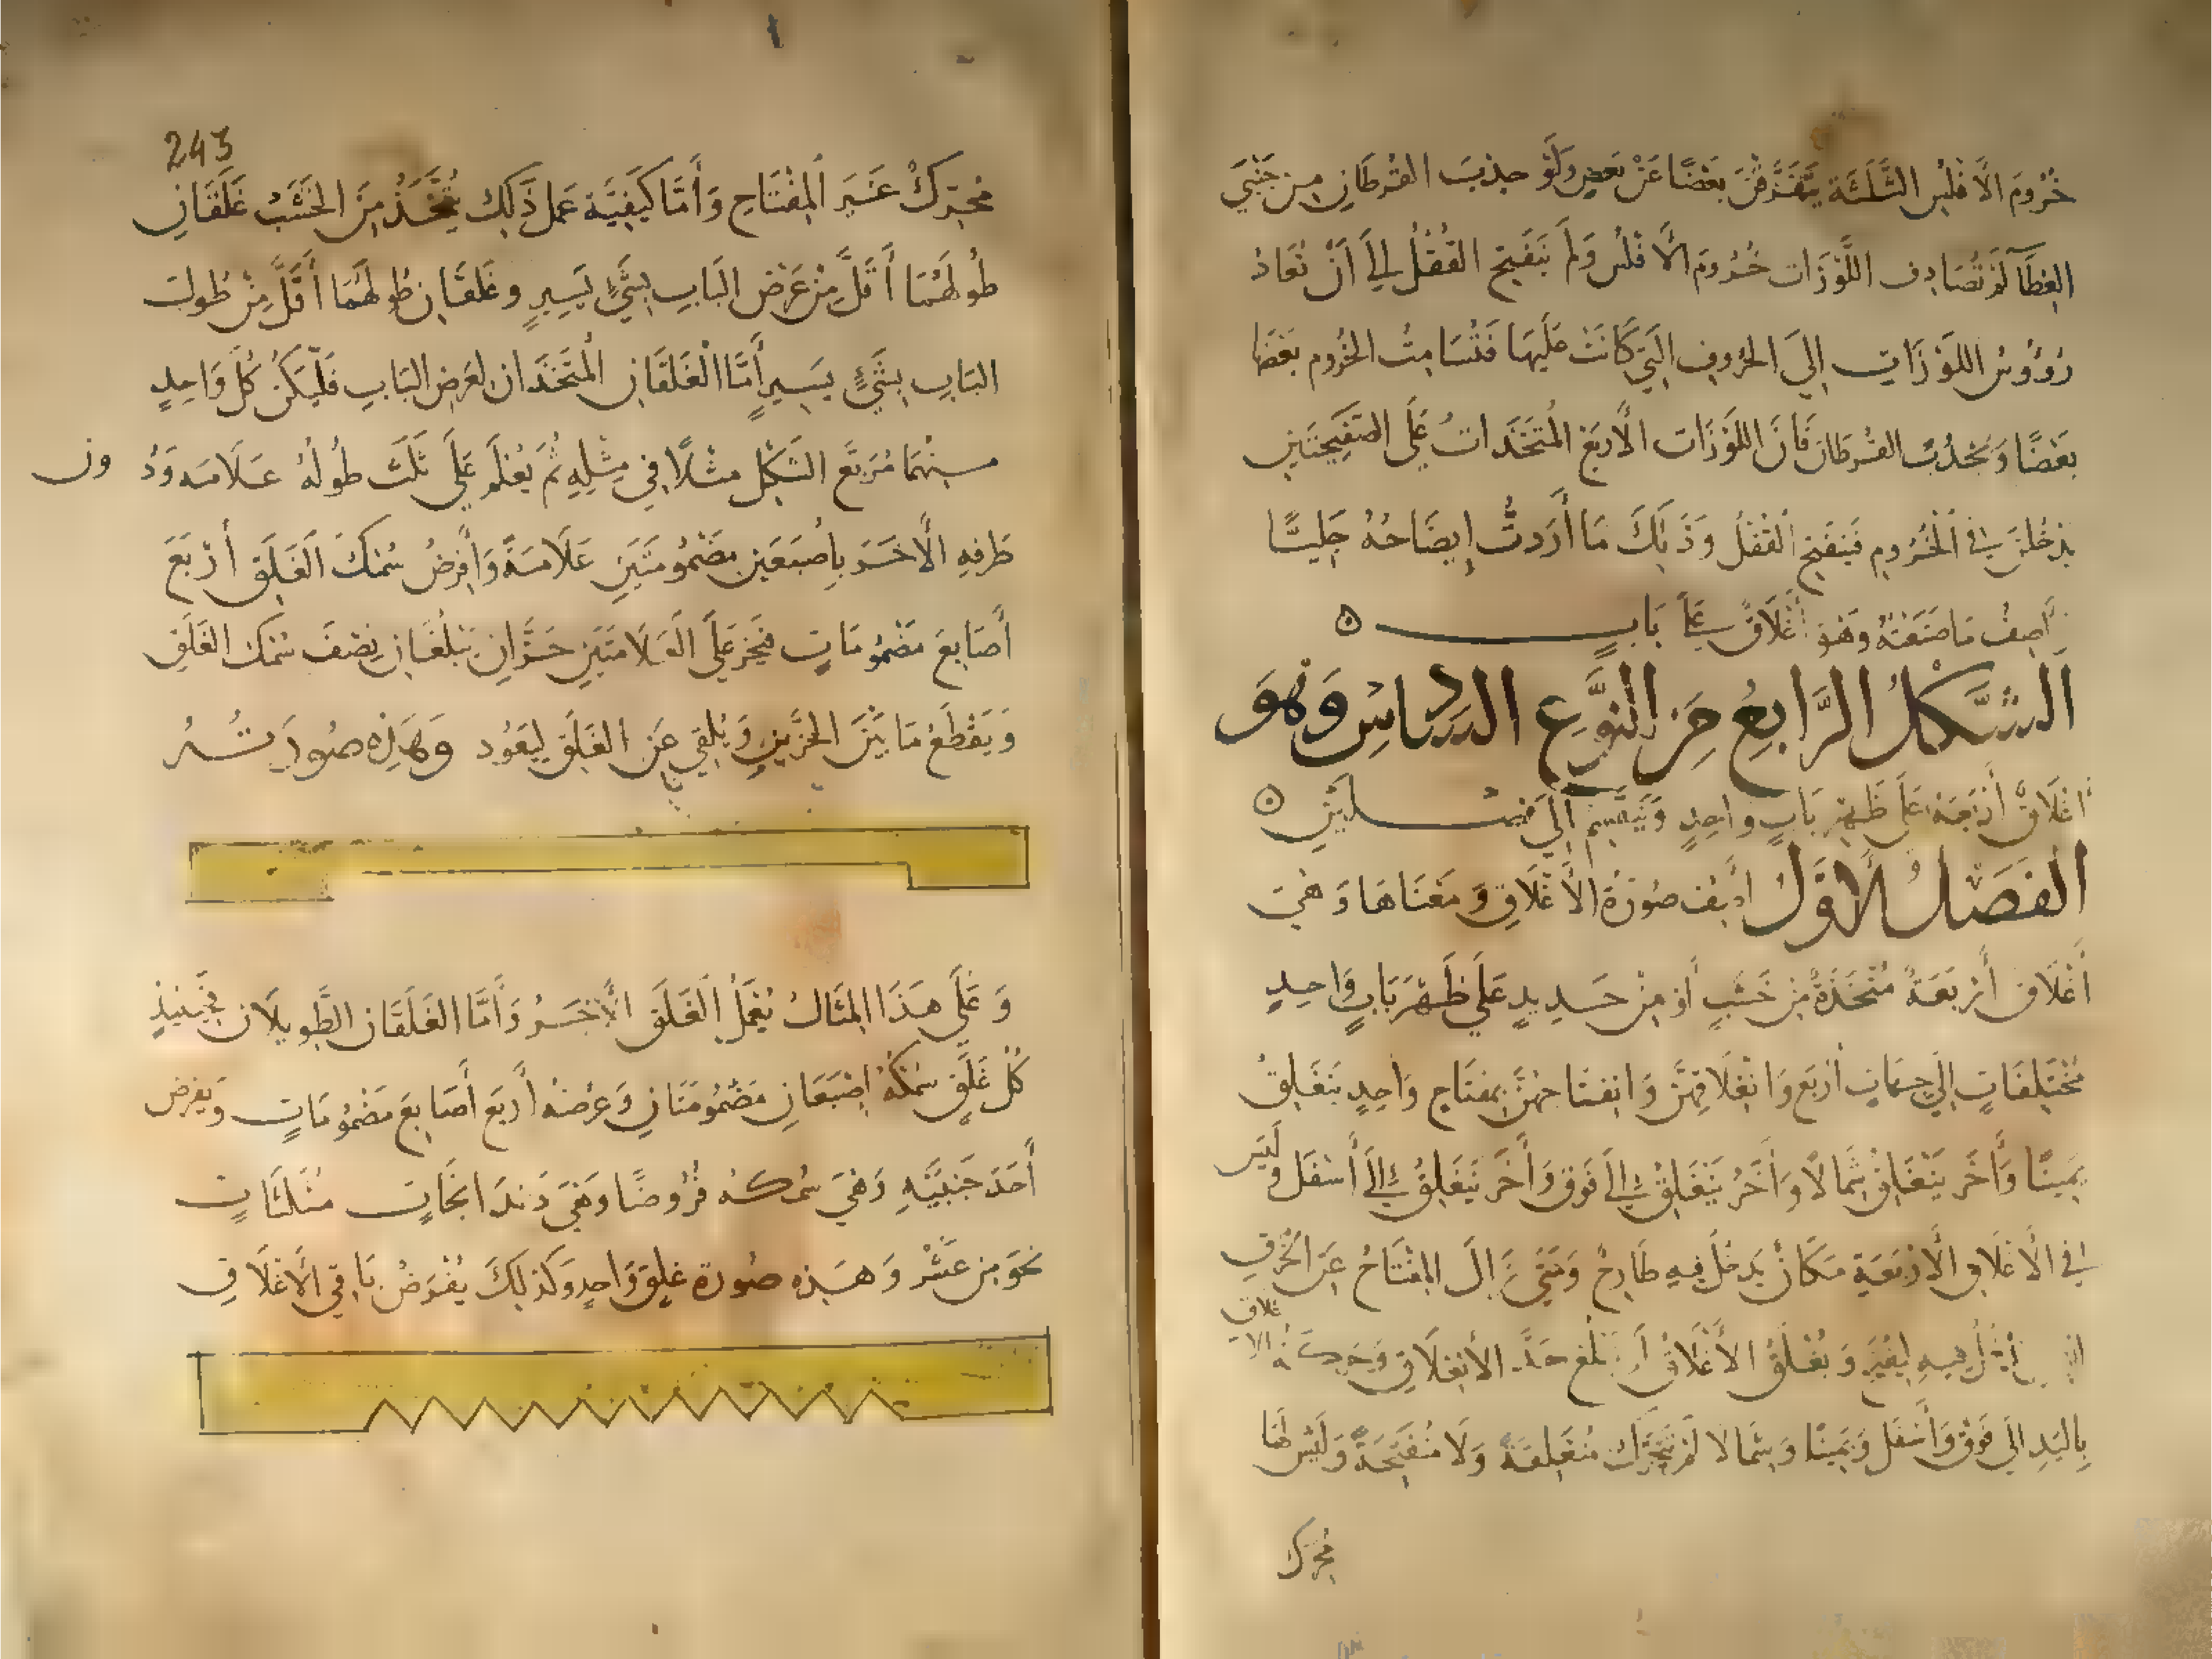 خُرُومَ الأَفلُسِ الثَّلَثَة يَتَقَدَّمْنَ بعضًا عَنْ بَعضٍ وَلَوْ جذبت القُرطَانِ مِن جَنْبَي
الغِطَآ لَمْ تُصَادِف اللَّوْزَات خُرُومَ الأَفلُس وَلَم يَنفَتِح القُفْلُ إلى أَنْ تُعَادَ
رُؤُوسُ اللَوْزَاتِ إِلَى الحُرُوفِ الَّتي كَانَتْ عَلَيْهَا فَتُسَامِتُ الخُرُوم بعضهَا
بَعْضًا وَيُجْذَبُ القُرطَان فَإنَّ اللَوْزَات الأَربَع المُتَّخَذَاتُ عَلَى الصَفِيحَتَيْنِ
يَدْخُلْنَ في الْخُرُوم فَيَنفَتِح القُفْلُ وَذَلِكَ مَا أَرَدتُ إِيضَاحُهُ جَلِيًّا
أَصِفُ مَا صَنَعْتُهُ وَهْوَ أَغْلَاقٌ عَلَى بَابٍ ٥
الشَّكْلُ الرَّابِعُ مِنَ النَّوْعِ السَّادِسِ وَهْوَ
أغْلَاقٌ أَرْبَعَة عَلَى ظَهْرِ بَابٍ وَاحِدٍ وَيَنقَسِمُ إِلَى فَصْلَيْنِ ٥
الفَصْلُ الأَوَّلُ أصِف صُورَةُ الأَغْلَاقِ وَمَعْنَاهَا وَهْيَ
أَغْلَاق أَرْبَعَةٌ مُتَّخَذَةٌ مِنْ خَشَبٍ أَوْ مِنْ حَدِيدٍ عَلَى ظَهْرِ بَابٍ وَاحِدٍ
مُخْتَلِفَاتٍ إِلَى جِهَاتٍ أَرْبَع وَانْغِلَاقِهِنَّ وَانفِتَاحهُنَّ بِمفتَاحٍ وَاحِدٍ يَنْغَلِقُ
يَمِينًا وَأَخَر يَنْغَلِقُ شِمَالًا وَأَخَرُ يَنْغَلِقُ إِلَى فَوْق وَأَخَر يَنْغَلِقُ إِلَى أَسْفَل وَلَيْسَ
في الأَغْلَاقِ الأَرْبَعَةِ مَكَانٌ يَدخُلُ فِيهِ طَارِحٌ وَمَتَى زَالَ المِفْتَاحُ عَنِ الخَرْقِ
فِيهِ لِيُغَيِّرَ وَيُغْلَقُ الأَغْلَاقُ بَلَغَ حَدَّ الانْغِلَاقِ وَحَرَكَة الاغلاق
بِالْيَدِ إِلَى فَوْق وَأَسْفَل وَيَمِينًا وَشِمَالا لَمْ تَتَحَرَّك مُنْغَلِقَةً وَلَا مُنفَتِحَةً وَلَيْسَ لَهَا
مُحَرِّك
243
مُحَرِّكٌ غَيْرَ الْمِفْتَاحِ وَأَمَّا كَيْفِيَّة عَمَل ذَلِكَ يُتَّخَذُ مِنَ الخَشَب غَلَقَانِ
طُولهُمَا أَقَلَّ مِنْ عَرْض البَابِ بِشَيْءٍ يَسِيرٍ وغَلَقَانِ طُولهُمَا أَقَلّ مِنْ طُولِ
البَابِ بِشَيْءٍ يَسِيرٍ أَمَّا الْغَلَقَانِ الْمُتَّخَذَانِ لعَرضِ البَابِ فَلْيَكُنْ كُلّ وَاحِدٍ
مِنْهُمَا مُرَبَّع الشَكْلِ مثْلًا فِي مِثْلِهِ ثُمَ يُعْلَمُ عَلَى ثُلث طُولهُ عَلَامَه وَدُون
طَرفِهِ الأَخَرَ بِإصْبَعَيْنِ مَضْمُومَتَيْنِ عَلَامَةً وَأَفرِضُ سُمْكَ الغَلَقِ أَرْبَعَ
أَصَابِعَ مَضْمُومَاتٍ فَيُحَزّ عَلَى الْعَلَامَتَيْنِ حَزَّانِ يَبْلُغَانِ نِصْفَ سُمْكَ الغَلَقِ
وَيَقْطَعُ مَا بَيْنَ الحَزَّيْنِ وَيُلقِي عَنِ الغَلَق لِيَعُود وَهَذِهِ صُورَتُهُ
وَعَلَى هَذَا المِثَالُ يُعْمَلُ الغَلَق الأَخَرُ وَأَمَّا الغَلَقَان الطَّوِيلَان فَحِينَئِذٍ
كُل غَلَقٍ سُمْكُهُ اصْبَعَانِ مَضْمُومَتَانِ وَعَرْضهُ أَربَع أَصَابِعَ مَضْمُومَاتٍ وَيفرض
أَحَدَ جَنْبَيْهِ وَهْيَ سُمكه فُرُوضًا وَهْيَ دَندَانجَات مُثَلَّثَاتٍ
نَحْوَ مِنْ عَشْرٍ وَهَذِهِ صُورَة غَلَقٍ وَاحِدٍ وَكَذَلِكَ يُفْرَضُ بَاقِي الأَغْلَاقِ